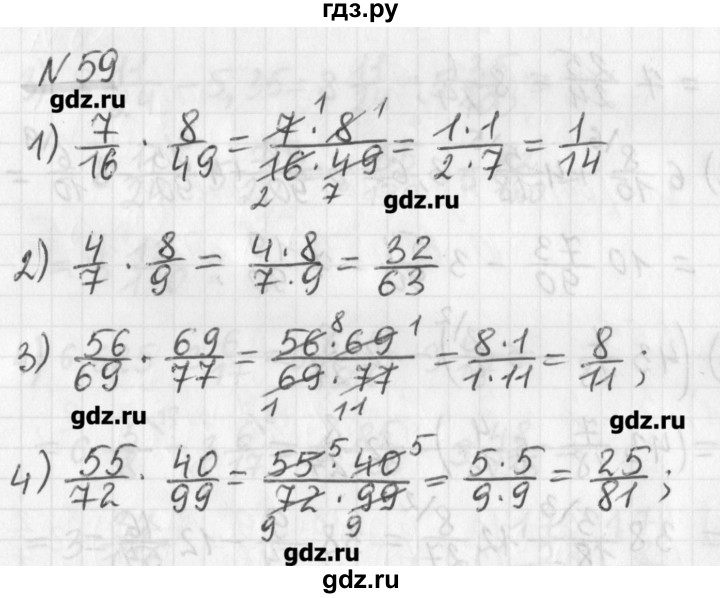 гдз.ру
N 59
gdz.ru
1) 7/16 · 8/49 = 7·8/16·49 = 1·1/2·7 = 1/14
1 1
2 7
gdz.ru
2) 4/7 · 8/9 = 4·8/7·9 = 32/63
3) 56/69 · 69/77 = 56·69/69·77 = 8·1/1·11 = 8/11;
8 1
1 11
gdz.ru
gdz.ru
4) 55/72 · 40/99 = 55·40/72·99 = 5·5/9·9 = 25/81;
5 5
9 9
gdz.ru
gdz.ru